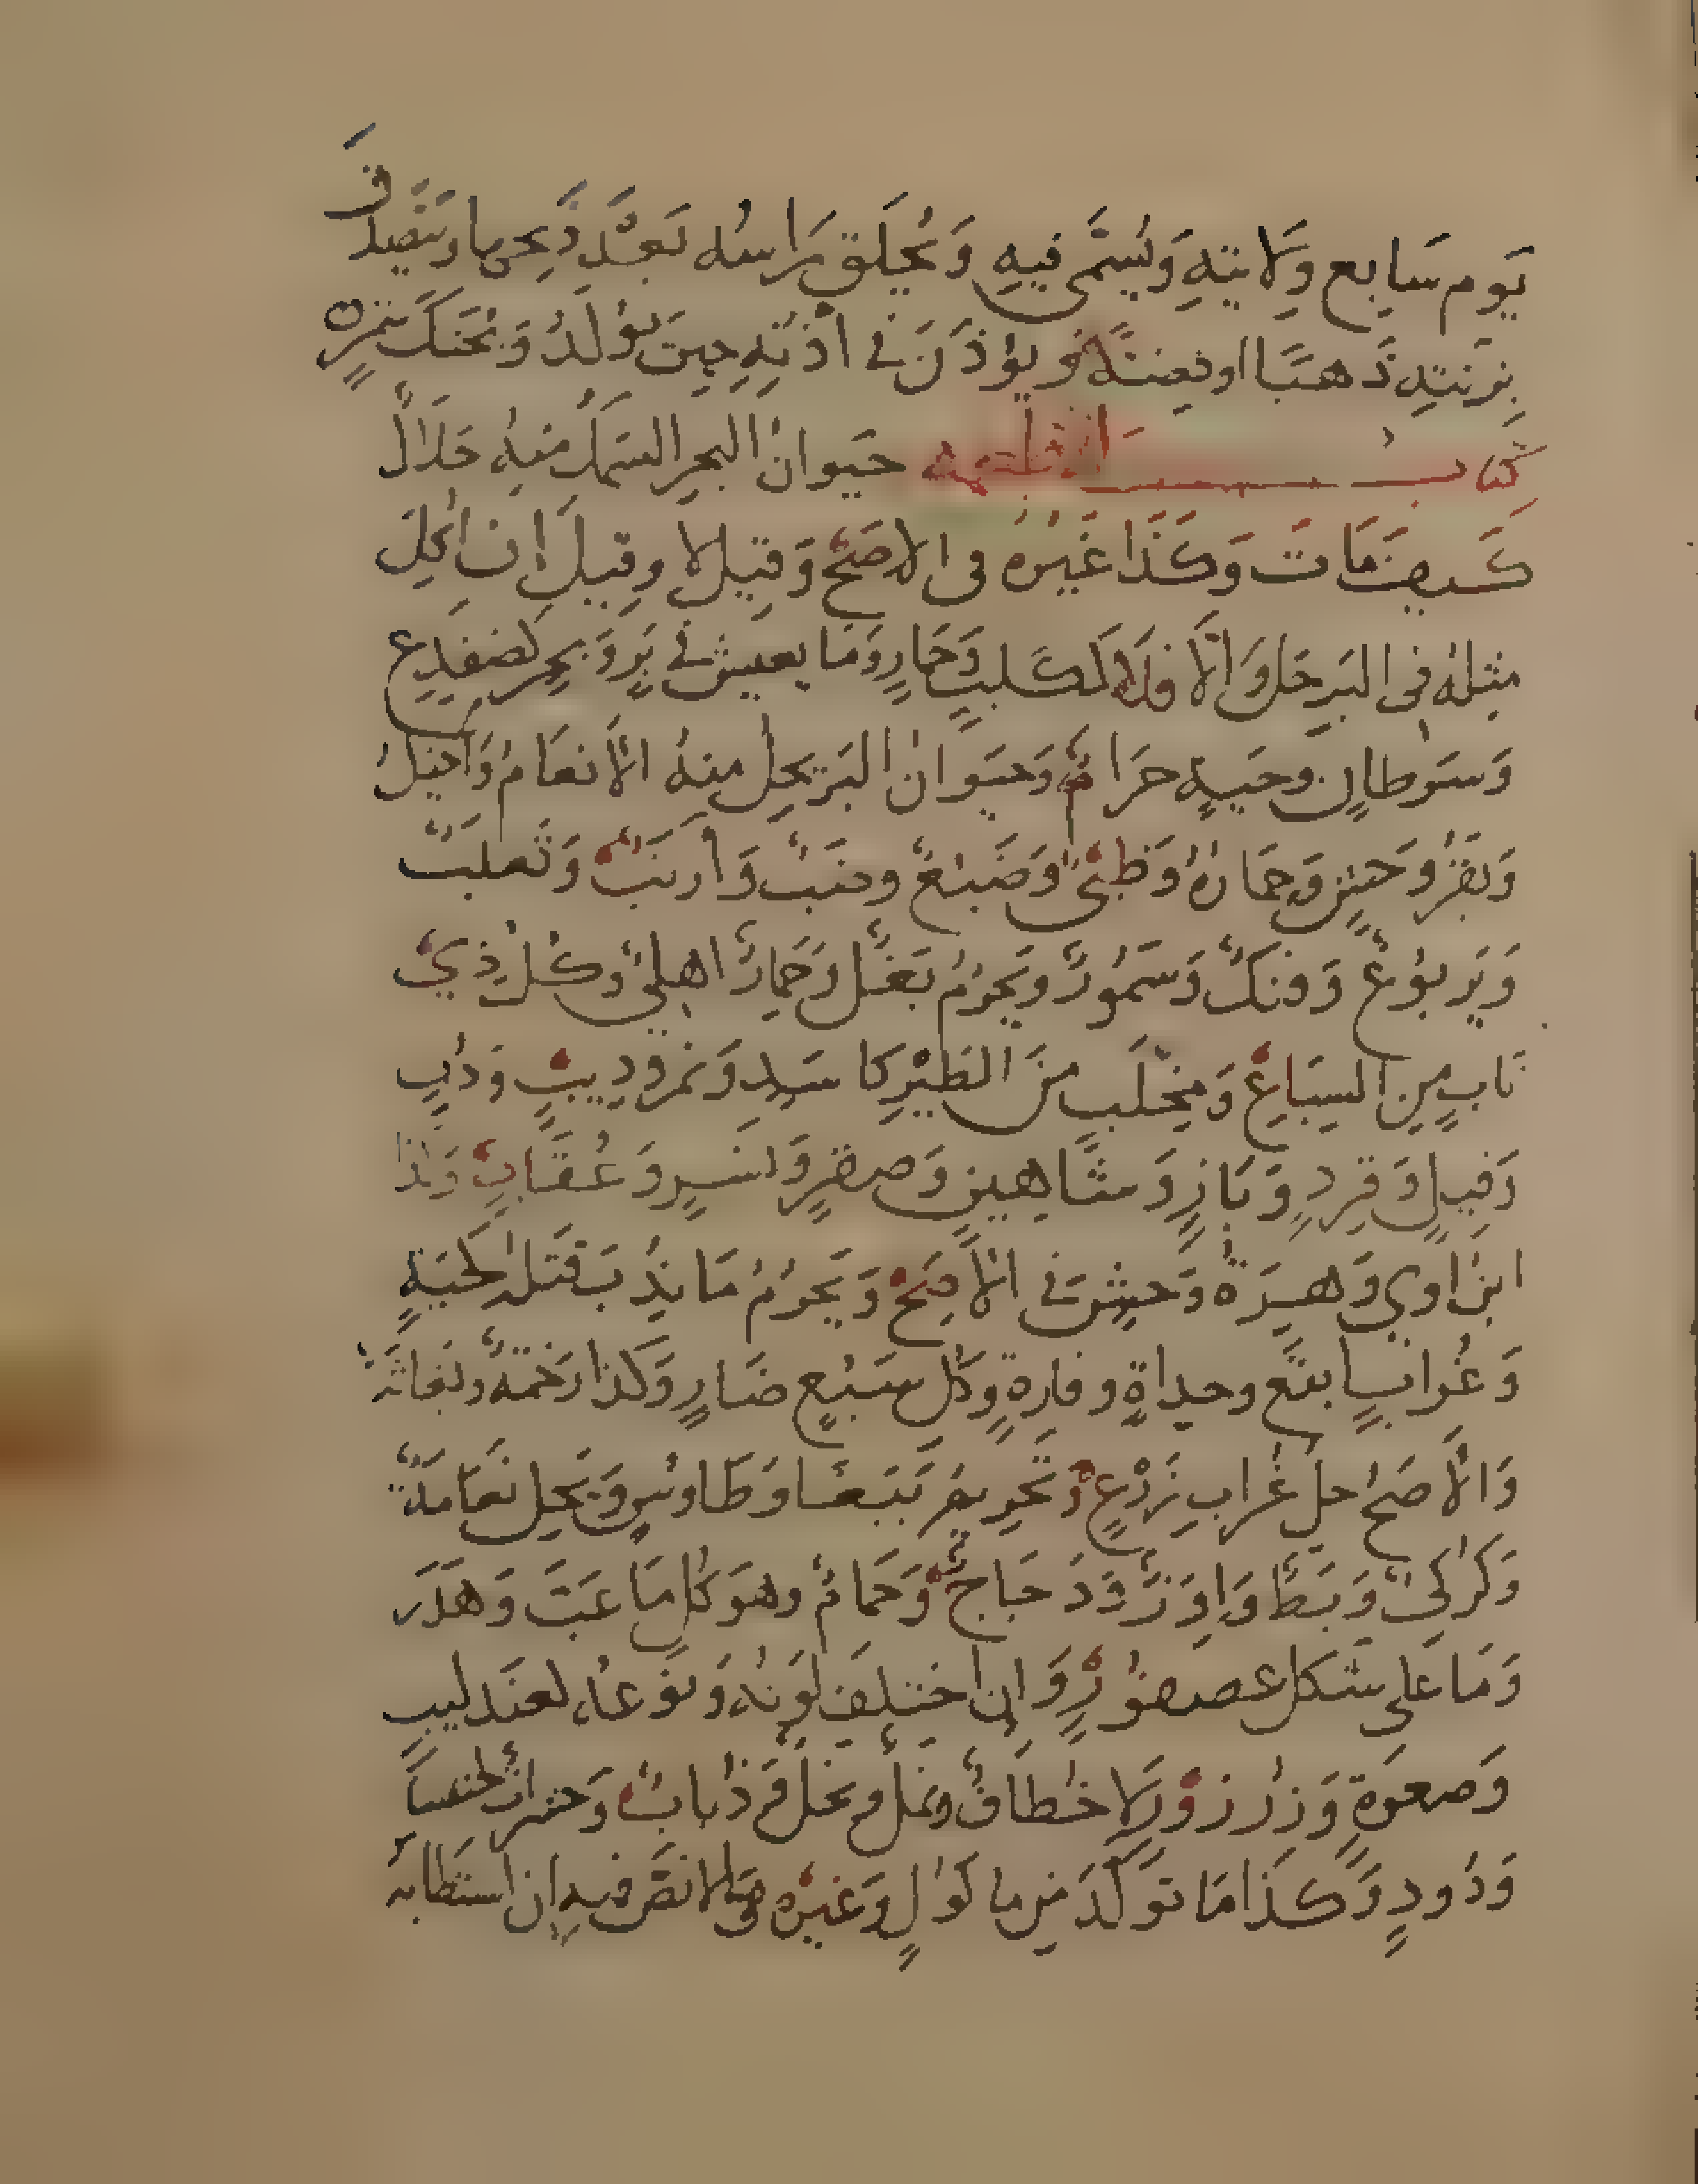 يَوم سَابِع وِلَادَتِهِ وَيُسَمَّى فيهِ وَيُحلَق رَاسُه بَعْدَ ذَبحِها ويتَصَدق
بِزِنَتِهِ ذَهَبًا او فِضَّةً وَيؤذَنَ فى اُذنِهِ حِينَ يُولَدُ وَيُحَنَّكُ بتمرٍ
كتابُ الاطعمه حيَوانُ البحرِ السَمَكُ مِنهُ حَلَالٌ
كَيفَ مَاتَ وَكَذَا غَيرُهُ فى الاصَحِّ وَقِيلَ لا وقِيلَ اِن اُكِلَ
مثلُهُ فى البَرِ حَلَّ وَاِلَّا فَلَا كَكَلبٍ وَحِمَارٍ وَمَا يعيشُ فى بَرٍ وَبحرٍ كَضفدِع
وَسَرَطانٍ وحَيةٍ حرَامٌ وَحيَوانُ البَرِّ يحِلُ مِنهُ الاَنعَامُ وَالخيلُ
وَبقرُ وَحشٍ وَحِمَارُهُ وَظَبىٌ وَضَبُعٌ وضَبٌ وَاَرنَبٌ وَثَعلبٌ
وَيَربُوعٌ وَفنَكٌ وَسَمُّورٌ وَيَحرُمُ بَغلٌ وَحِمَارٌ اهليٌ وَكُلُ ذِي
نَابٍ مِن السِبَاعِ وَمِخلَبٍ مِنَ الطَيْرِ كَاسَدٍ وَنمرٍ وذِيبٍ وَدُبٍ
وَفِيلٍ وَقِردٍ وَبَازٍ وَشَاهِينٍ وَصقرٍ وَنَسرٍ وَعُقَابٍ وَكذا
ابنُ اوي وَهِرَةُ وَحشٍ فى الاَصَحِّ وَيَحرُمُ مَا نُدِبَ قَتلُه كحَيَةٍ
وَغُرابٍ ابقَع وحِداةٍ وفارةٍ وَكلِ سَبُعٍ ضَارٍ وَكذا رَخَمَةٌ وبُغاثَةٌ
وَالاَصَحُ حِلُ غُرابِ زَرْعٍ وَتَحرِيمُ بَبَغَا وَطَاوسٍ وَتَحِلُ نعَامَةٌ
وَكُركىٌ وَبَطٌ وَاِوَزٌ وَدَجَاجٌ وَحَمامٌ وهوَ كُل مَا عَبَّ وَهَدَرَ
وَمَا عَلى شَكلِ عصفُورٍ وَاِن اختلَفَ لَونُهُ وَنَوعُهُ كعَندَليبٍ
وَصعوَةٍ وَزُرزُورٍ لا خُطَافٌ وَنملٌ وَنحلٌ وَذُبابٌ وَحشراتٌ كخنفسَا
وَدُودٍ وَكذَا مَا تَوَلَّدَ مِن مَاكُولٍ وَغَيرِهِ وَمَا لا نَصَّ فيهِ اِن استَطَابهُ